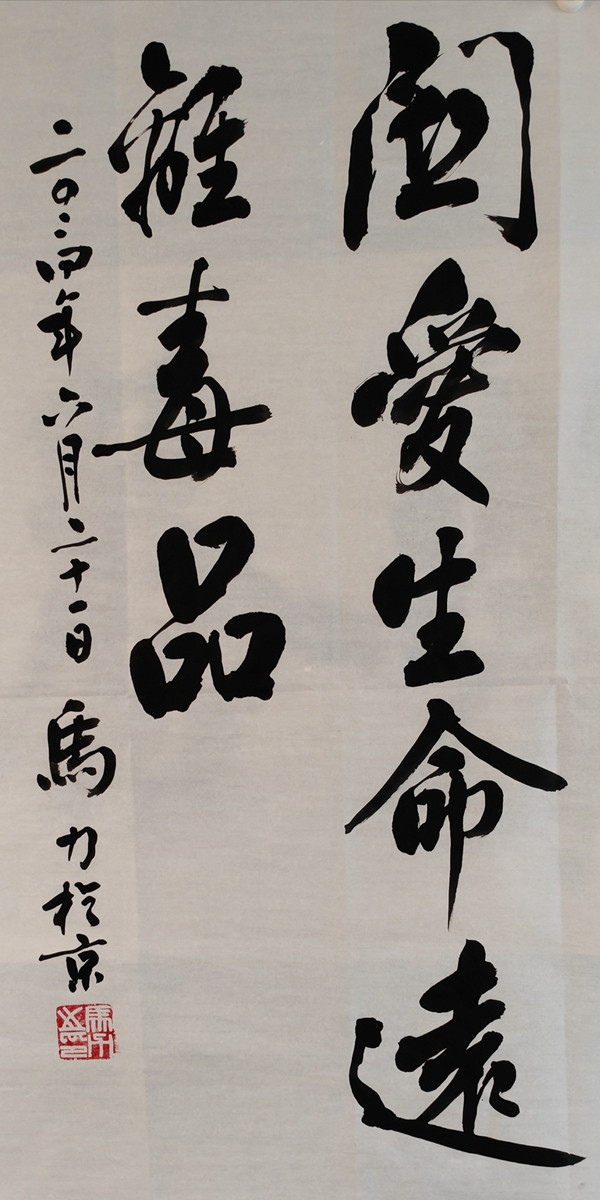 關愛生命遠
離毒品
二〇二四年六月二十一日 馬力於京